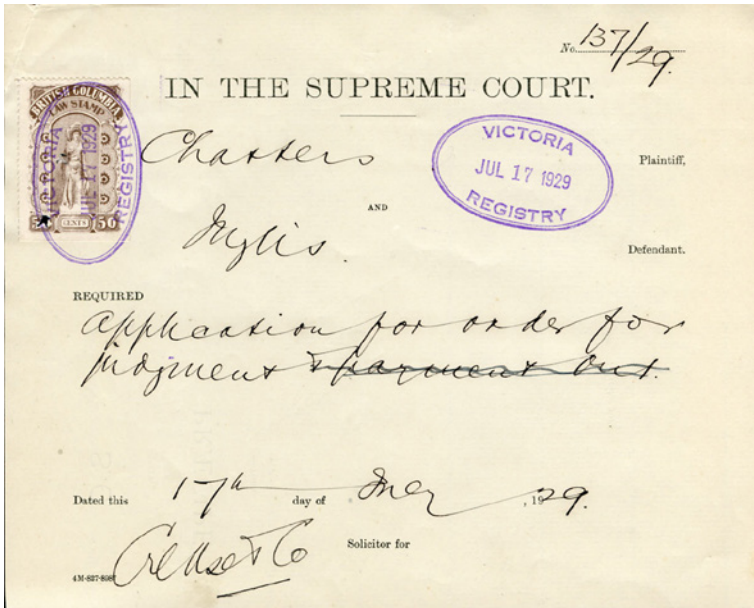 No. 137/29.
IN THE SUPREME COURT.
BRITISH COLUMBIA
LAW STAMP
50 CENTS 50
VICTORIA
JUL 17 1929
REGISTRY
Chasters
Plaintiff,
VICTORIA
JUL 17 1929
REGISTRY
AND
Defendant.
REQUIRED
Application for order for
judgment & payment out.
Dated this 17th day of July, 1929.
Crease & Co
Solicitor for